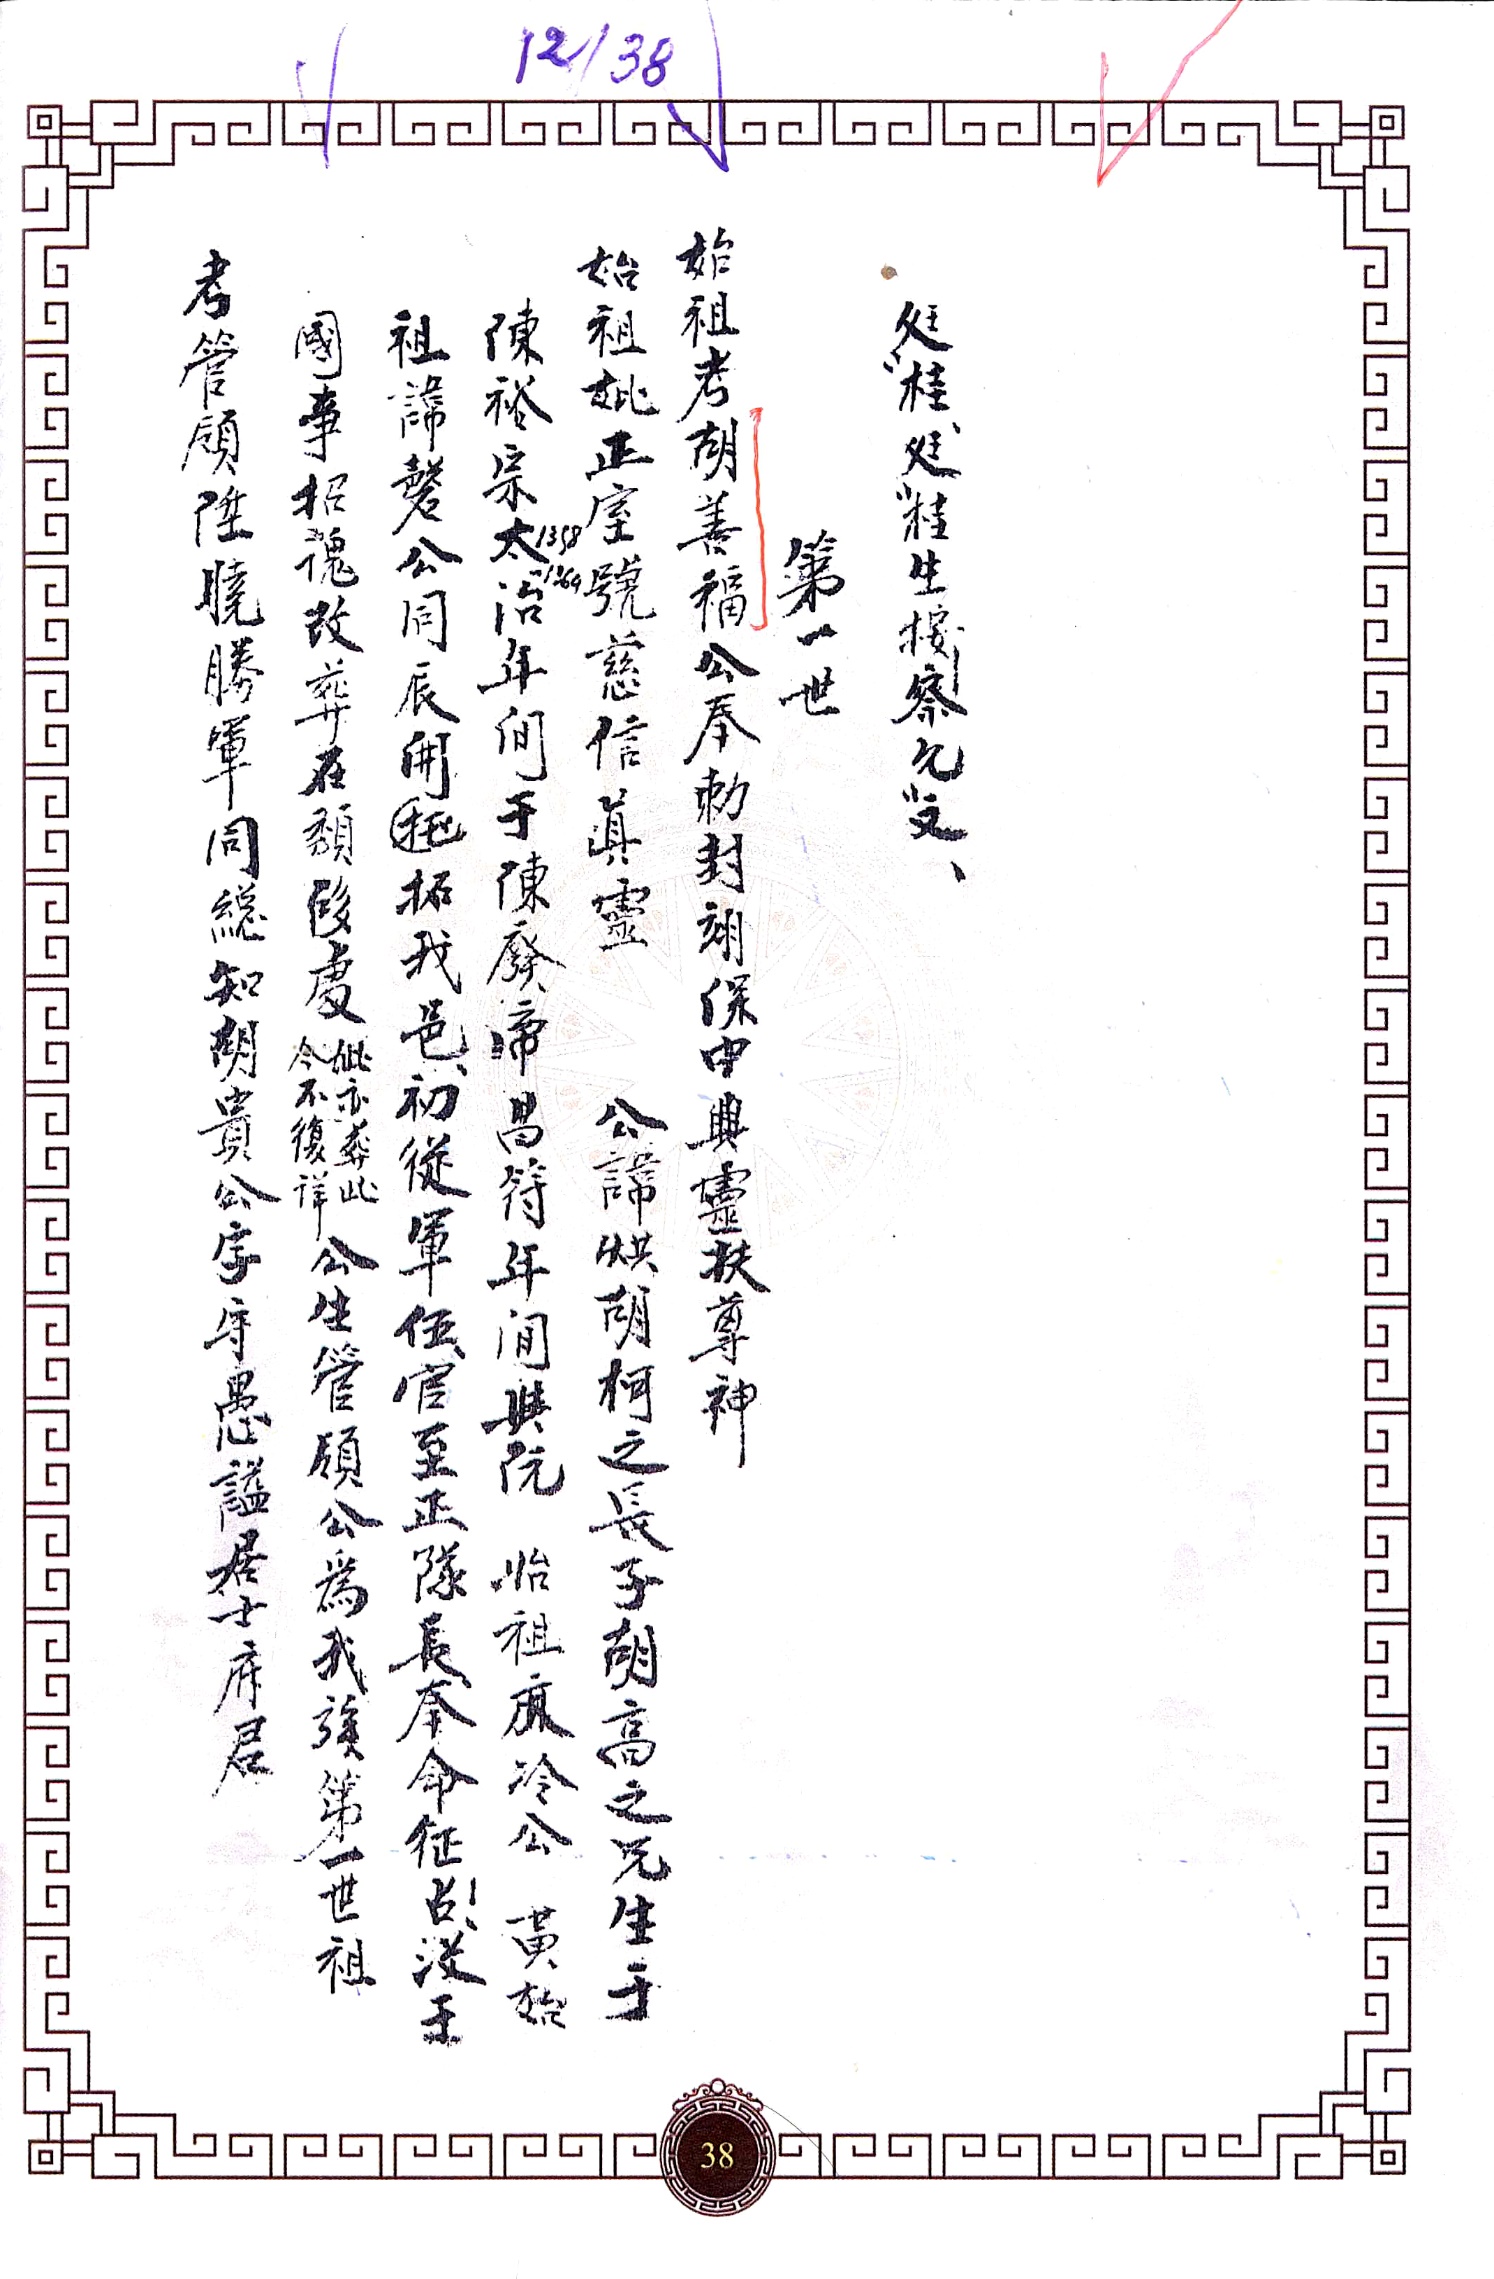 12/38
廷桂、廷桂生按察允文、
第一世
始祖考胡善福公奉勅封翊保中興靈扶尊神
始祖妣正室號慈信眞靈 公諱烘胡柯之長子胡高之兄生于
陳裕宗太治年间于陳廢帝昌符年間與阮 始祖 冷公 黄始
1358
-1369
祖諱磬公同辰開拓我邑、初從軍伍、官至正隊長、奉命征占、没于
國事招魂改葬在 處 妣亦葬此
今不復詳 公生管領公爲我族第一世祖
考管領陞驍勝軍同總知胡貴公字守愚謚居士府君
38